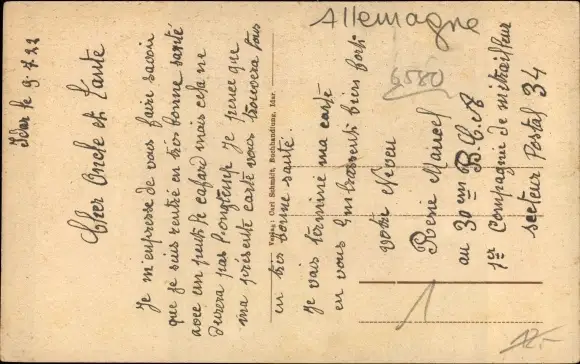 Idar le 9.7.22
Cher Oncle et Tante
Je m'enpresse de vous faire savoir
que je suis rentré en tres bonne santé
avec un petit de cafard mais cela ne
durera pas longtemp je pence que
ma présente carte vous trouvera tous
en tres bonne santé.
Je vais terminé ma carte
en vous Embrassent bien fort
votre Neveu
René Marcel
au 30em B.C.P
1er Compagnie de mitrailleur
secteur Postal 34
Verlag: Carl Schmidt, Buchhandlung, Idar.
Allemagne
6580
1
12.-